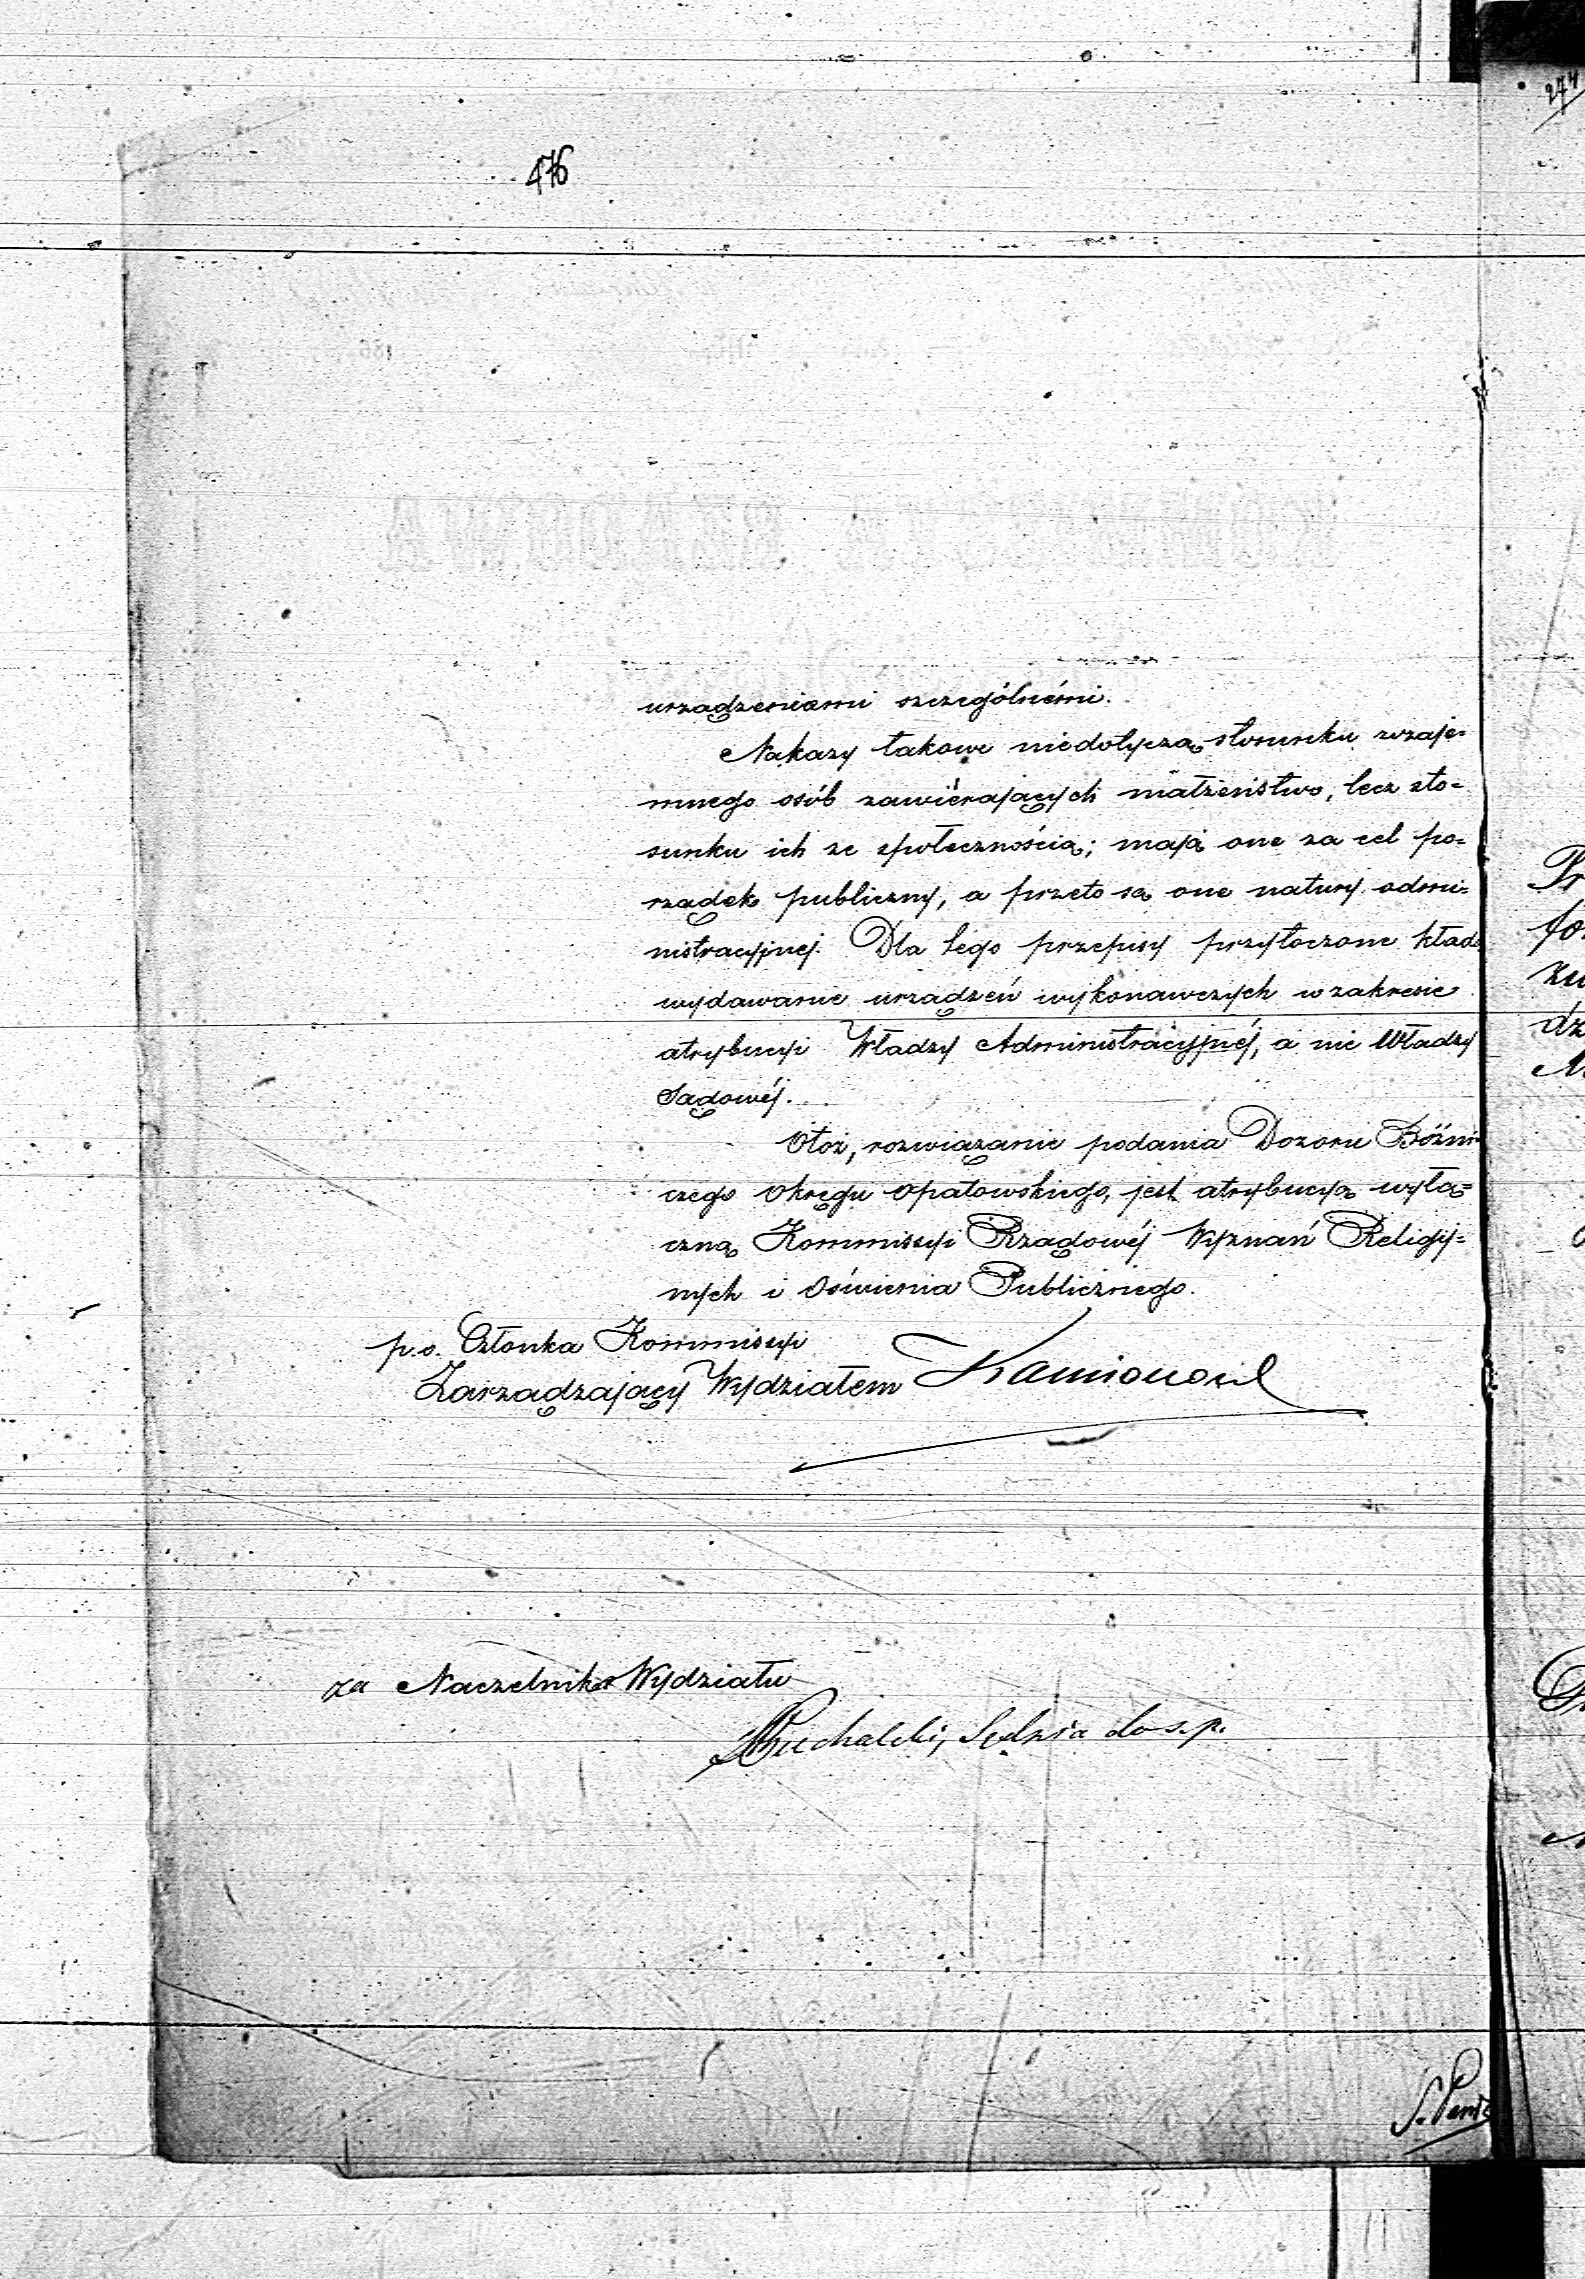 274
476
urządzeniami szczególnémi.
Nakazy takowe niedotyczą stosunku wzaje-
mnego osób zawiérających małżeństwo, lecz sto-
sunku ich ze społecznością; mają one za cel po-
rządek publiczny, a przeto są one natury admi-
nistracyjnej. Dla tego przepisy przytoczone kładą
wydawanie urządzeń wykonawczych w zakresie
atrybucyi Władzy Administracyjnéj, a nie Władzy
Sądowéj.
Otoż, rozwiązanie podania Dozoru Bóżni-
czego Okręgu Opatowskiego, jest atrybucyą wyłą-
czną Kommissyi Rządowéj Wyznań Religij-
nych i Oświenia Publicznego.
p.o. Członka Kommissyi
Zarządzający Wydziałem
za Naczelnika Wydziału
Puchalski, Sędzia do s.p.